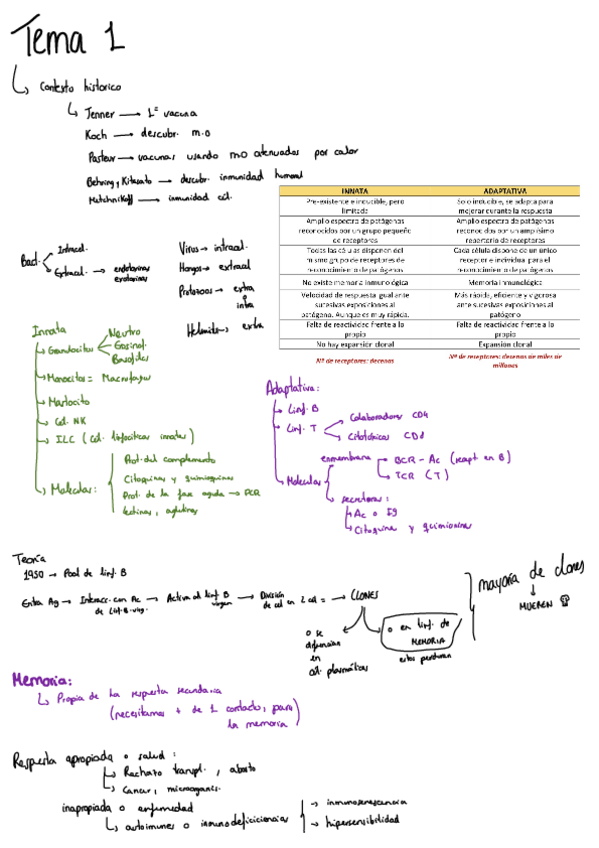 Tema 1
Contexto historico
Jenner → 1ª vacuna
Koch → descubr. m.o
Pasteur → vacunas usando mo atenuados por calor
Behring y Kitasato → descubr. inmunidad humoral
Metchnikoff → inmunidad cel.
INNATA
ADAPTATIVA
Pre-existente e inducible, pero limitada
Solo inducible, se adapta para mejorar durante la respuesta
Amplio espectro de patógenos reconocidos por un grupo pequeño de receptores
Amplio espectro de patógenos reconocidos por un amplísimo repertorio de receptores
Todas las células disponen del mismo grupo de receptores de reconocimiento de patógenos
Cada célula dispone de un único receptor e individual para el reconocimiento de patógenos
No existe memoria inmunológica
Memoria inmunológica
Velocidad de respuesta igual ante sucesivas exposiciones al patógeno. Aunque es muy rápida.
Más rápida, eficiente y vigorosa ante sucesivas exposiciones al patógeno
Falta de reactividad frente a lo propio
Falta de reactividad frente a lo propio
No hay expansión clonal
Expansión clonal
Nº de receptores: decenas
Nº de receptores: decenas de miles de millones
Bact.
Intracel.
Extracel. → endotoxinas
exotoxinas
Virus → intracel.
Hongos → extracel
Protozoos → extra
o
intra
Helmintos → extra
Innata
Granulocitos
Neutro
Eosinof.
Basofilos
Monocitos = Macrofagos
Mastocito
Cel. NK
ILC (Cel. linfociticas innatas)
Molecular:
Prot. del complemento
Citoquinas y quimioquinas
Prot. de la fase aguda → PCR
Lectinas, aglutinas
Adaptativa:
Linf. B
Linf. T
Colaboradores CD4
Citotóxicos CD8
Molecular
en membrana
BCR - Ac (recept. en B)
TCR (T)
secretoras:
Ac o Ig
Citoquina y quimioquinas
Teoría
1950 → Pool de linf. B
Entra Ag → Interacc. con Ac → Activa al linf. B → División → CLONES
de linf. B virg.
virgen
de cel en 2 cel =
o se
diferencian
en
cél. plasmáticas
o en linf. de
MEMORIA
estos perduran
mayoría de clones
MUEREN
Memoria:
Propia de la respuesta secundaria
(necesitamos + de 1 contacto para
la memoria)
Respuesta apropiada o salud:
Rechazo transpl., aborto
Cancer, microorganis.
inapropiada o enfermedad
autoinmunes o inmunodeficiencias
inmunosenescencia
hipersensibilidad